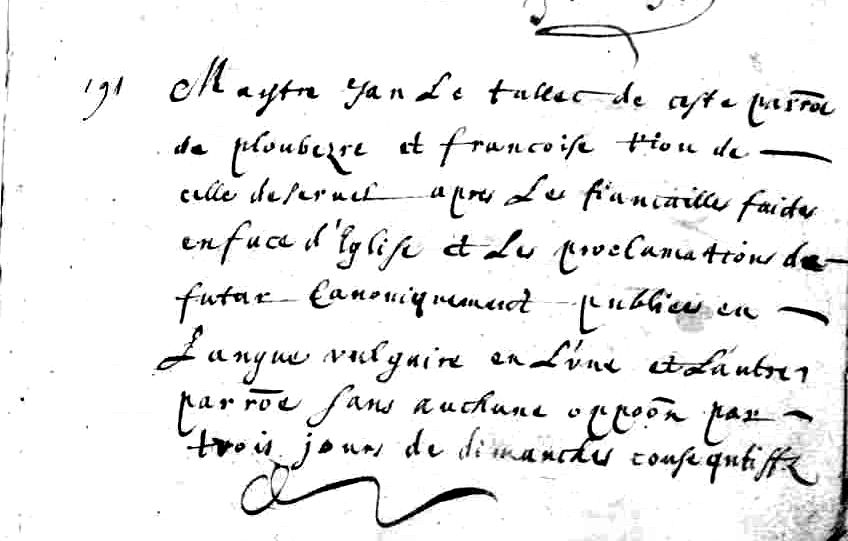 191 Maystre Yan Le tallec de ceste parrōe
de ploubezre et francoise tiou de
celle de servel apres Les fiancailles faictes
en face d'Eglise et Les proclamations de
futur Canoniquement publiees en
Langue vulgaire en L'une et L'autre
parrōe sans auchune oppoōn par
trois jours de dimanches consequtiffz